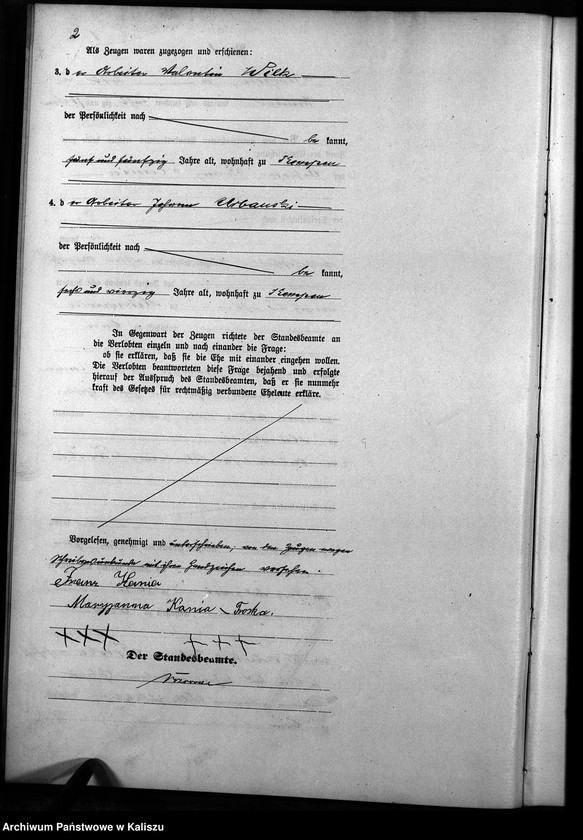 2
Als Zeugen waren zugezogen und erschienen:
3. der Arbeiter Valentin Wilk
der Persönlichkeit nach
be kannt,
fünf und fünfzig Jahre alt, wohnhaft zu Kempen
4. der Arbeiter Johann Urbanski
der Persönlichkeit nach
be kannt,
sechs und vierzig Jahre alt, wohnhaft zu Kempen
In Gegenwart der Zeugen richtete der Standesbeamte an
die Verlobten einzeln und nach einander die Frage:
ob sie erklären, daß sie die Ehe mit einander eingehen wollen.
Die Verlobten beantworteten diese Frage bejahend und erfolgte
hierauf der Ausspruch des Standesbeamten, daß er sie nunmehr
kraft des Gesetzes für rechtmäßig verbundene Eheleute erkläre.
Vorgelesen, genehmigt und unterschrieben, von den Zeugen wegen
Schreibunkunde mit ihren Handzeichen versehen.
Franz Kania
Maryjanna Kania Troska.
+++ +++
Der Standesbeamte.
Archiwum Państwowe w Kaliszu